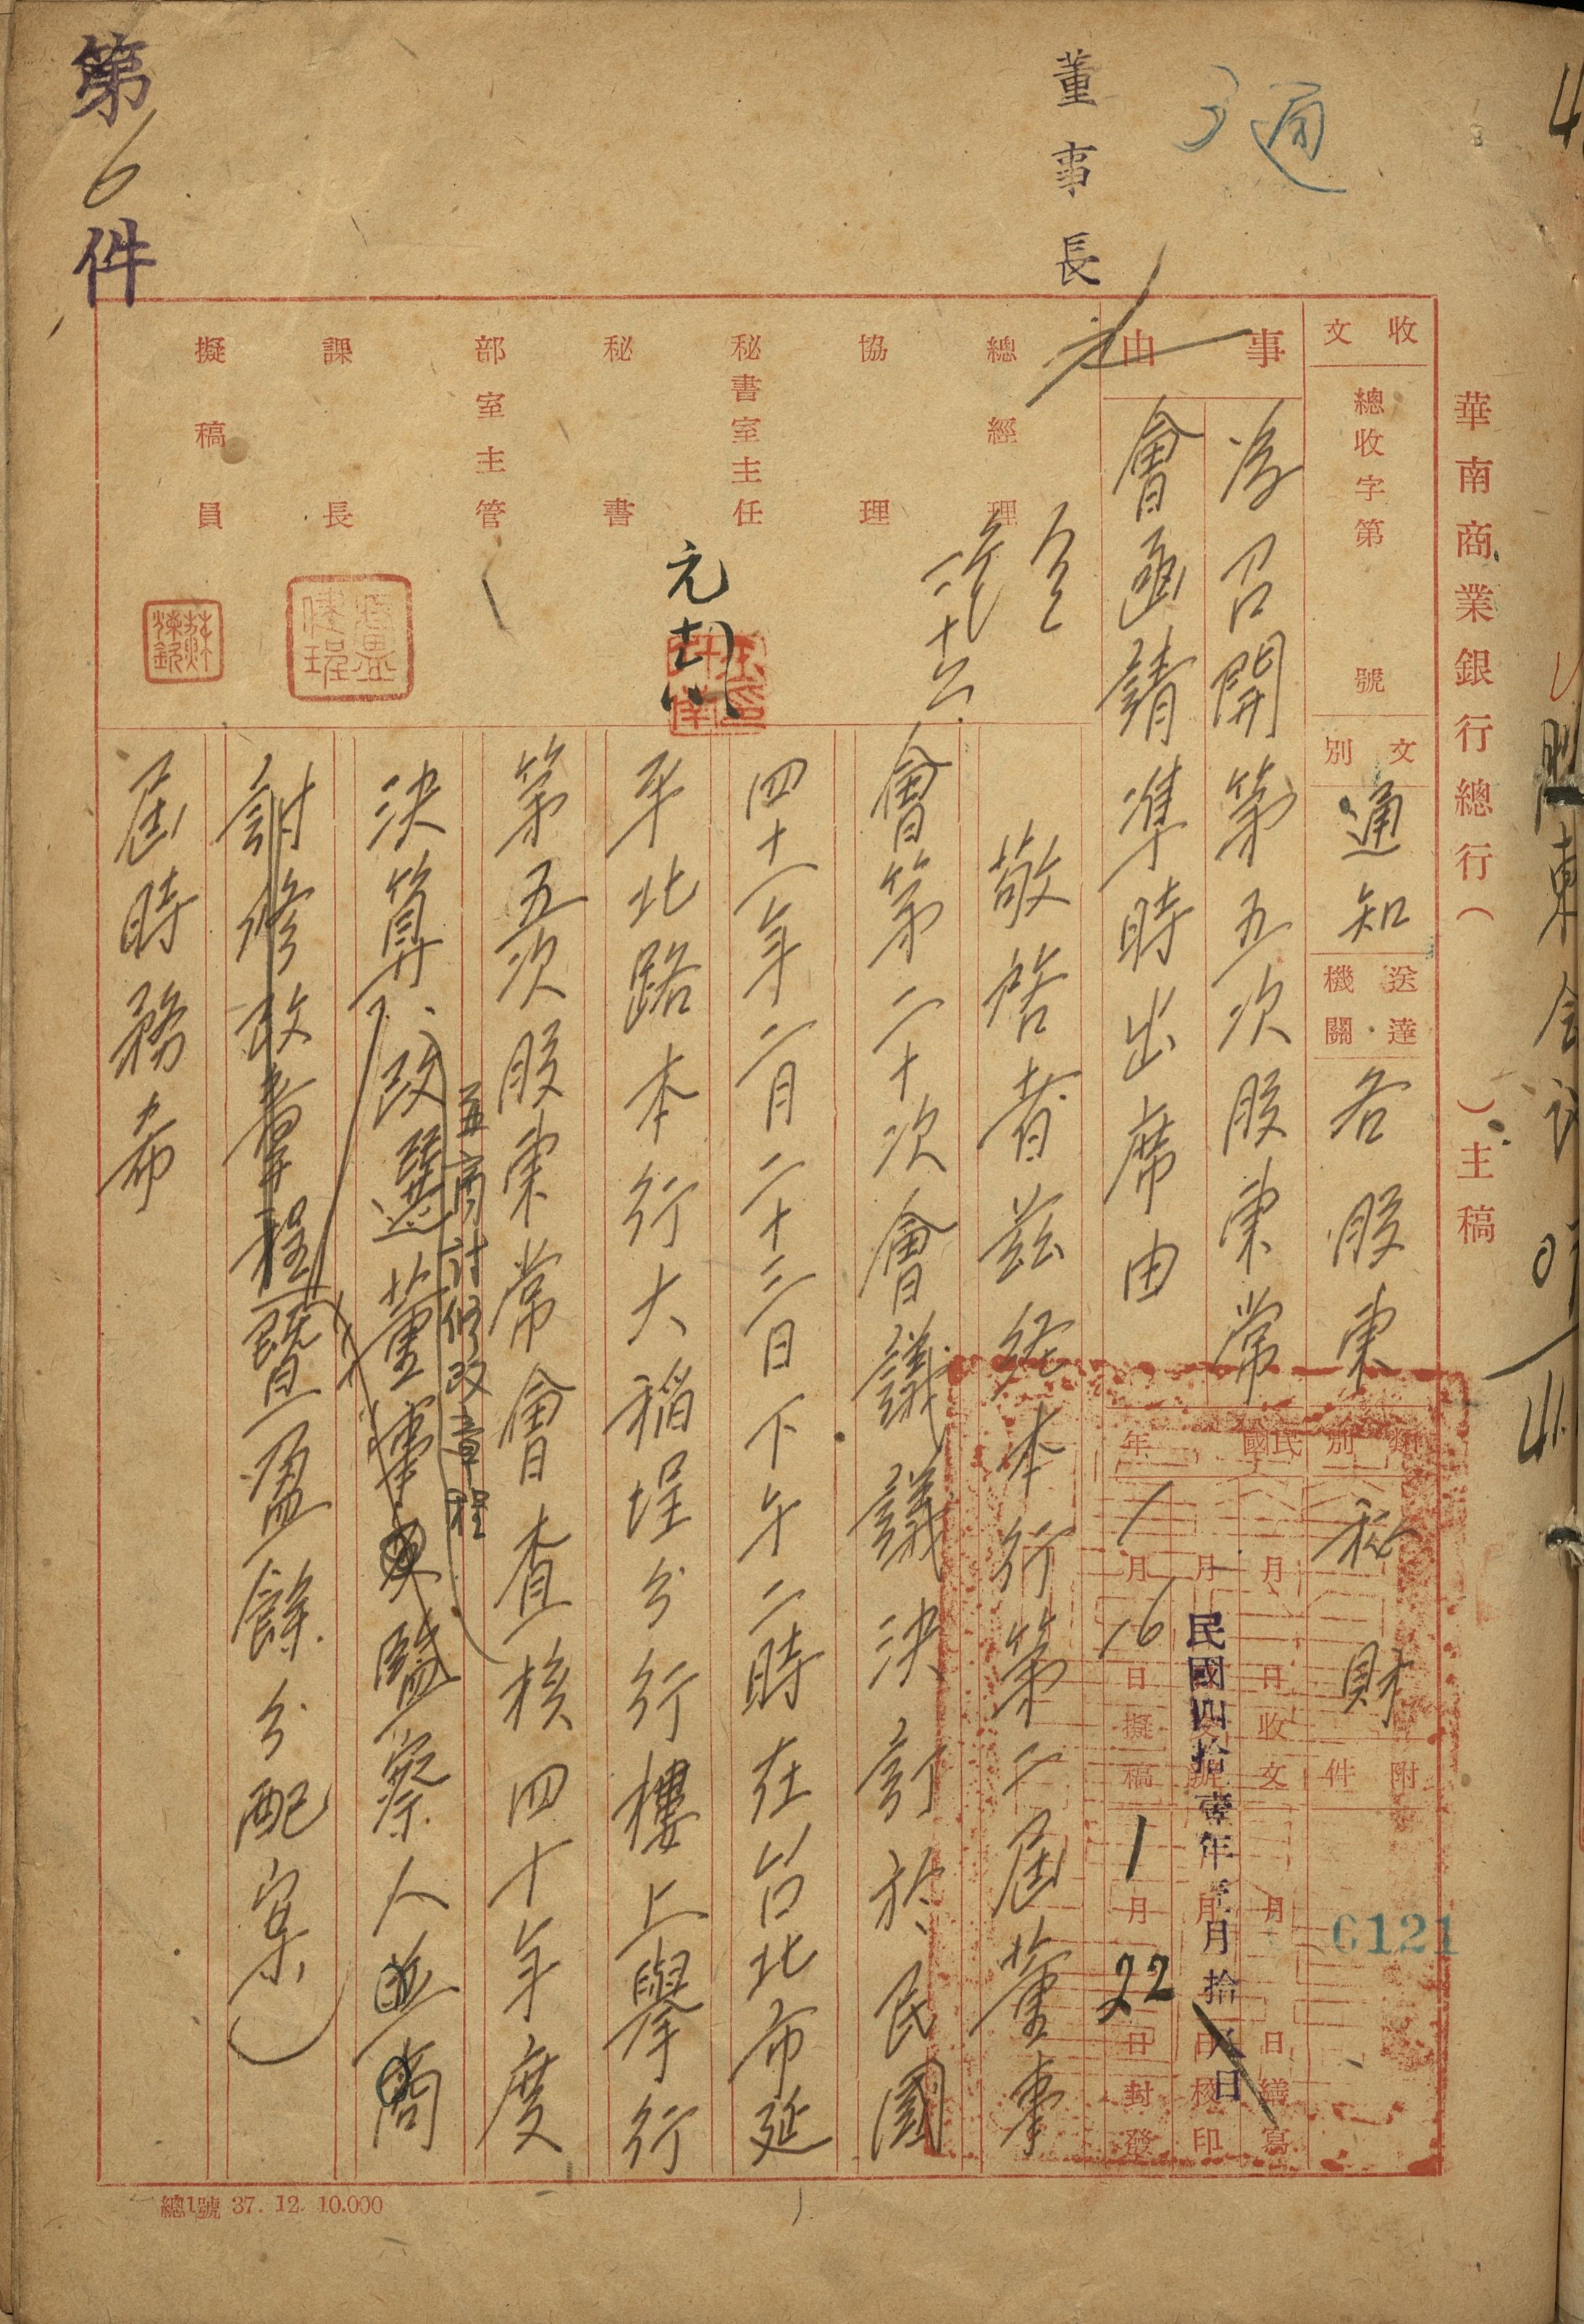 第6件
董事長
3通
華南商業銀行總行（　　）主稿
收文
總收字第　號
文別
通知
送達機關
各股東
類別
秘財
附件
6121
事由
為召開第五次股東常
會函請準時出席由
民國　年
月　日收文
月　日繕寫
月　日校印
民國四拾壹年壹月拾　日
1月16日擬稿
1月22日封發
總經理
協理
秘書室主任
秘書
部室主管
課長
擬稿員
敬啓者茲經本行第二屆董事
會第二十次會議議決訂於民國
四十一年二月二十三日下午二時在台北市延
平北路本行大稻埕分行樓上舉行
第五次股東常會查核四十年度
並商討修改章程
決算、改選董事及監察人並商
討修改章程暨盈餘分配案）
屆時務希
總1號 37. 12. 10.000